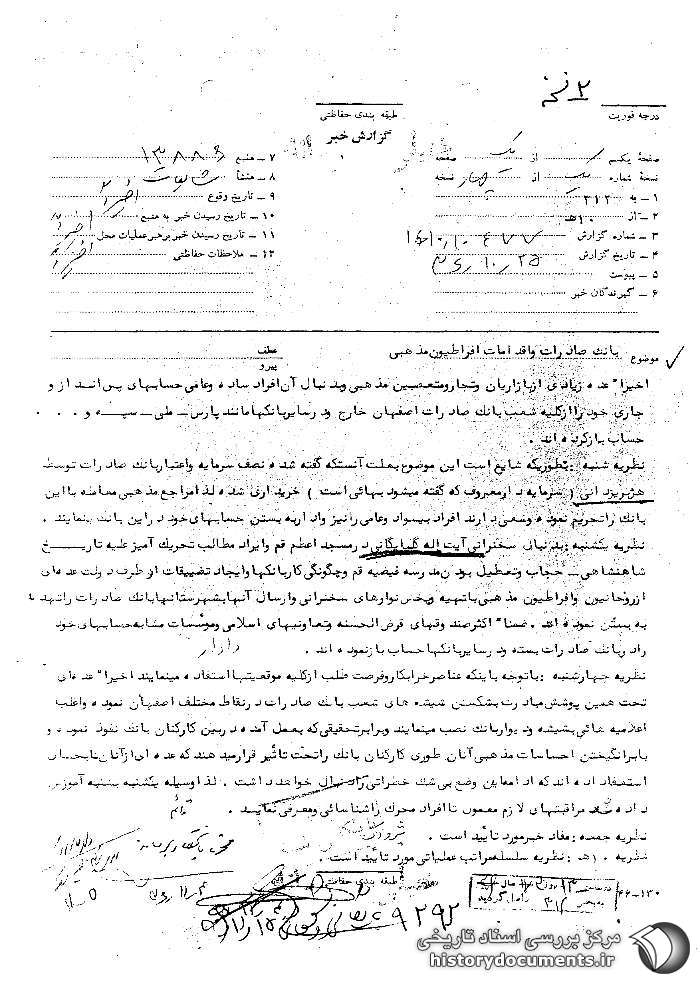 ۲ نسخه
درجه فوریت
طبقه بندی حفاظتی
گزارش خبر
صفحهٔ یکم از یک صفحه
نسخهٔ شماره از چهار نسخه
۱ – به ۳۱۲
۲ – از ۱۰هـ
۳ – شماره گزارش
۴ – تاریخ گزارش ۳۶٫۱۰٫۲۵
۵ – پیوست
۶ – گیرندگان خبر
۷ – منبع ۱۳۸۸۶
۸ – منشأ شایعات
۹ – تاریخ وقوع اخیرا
۱۰ – تاریخ رسیدن خبر به منبع اخیرا
۱۱ – تاریخ رسیدن خبر برهبر عملیات محل اخیرا
۱۲ – ملاحظات حفاظتی
موضوع بانک صادرات واقدامات افراطیون مذهبی
عطف
پیرو
اخیرا" عده زیادی ازبازاریان وتجارومتعصبین مذهبی وبدنبال آن افراد ساده وعامی حسابهای پس انداز و
جاری خود راازکلیه شعب بانک صادرات اصفهان خارج ودرسایربانکهامانند پارس – ملی – سپه و . . .
حساب بازکرده اند .
نظریه شنبه : بطوریکه شایع است این موضوع بعلت آنستکه گفته شده نصف سرمایه واعتباربانک صادرات توسط
هژبریزدانی ( سرمایه دارمعروف که گفته میشود بهائی است ) خریداری شده لذا مراجع مذهبی معامله بااین
بانک راتحریم نموده وسعی دارند افراد بیسواد وعامی رانیز وادار به بستن حسابهای خود دراین بانک بنمایند .
نظریه یکشنبه : بدنبال سخنرانی آیت اله گلپایگانی درمسجد اعظم قم وایراد مطالب تحریک آمیز علیه تاریخ
شاهنشاهی – حجاب وتعطیل بودن مدرسه فیضیه قم وچگونگی کاربانکها وایجاد تضییقات از طرف دولت عده ای
ازروحانیون وافراطیون مذهبی باتهیه وپخش نوارهای سخنرانی وارسال آنهابشهرستانهابانک صادرات راتهدید
به بستن نموده اند . ضمنا" اکثرصندوقهای قرض الحسنه وتعاونیهای اسلامی وموسسات مشابه حسابهای خود
رادربانک صادرات بسته ودرسایربانکهاحساب بازنموده اند .
نظریه چهارشنبه : باتوجه باینکه عناصرخرابکاروفرصت طلب ازکلیه موقعیتهااستفاده مینمایند اخیرا" عده ای
تحت همین پوشش مبادرت بشکستن شیشه های شعب بانک صادرات درنقاط مختلف اصفهان نموده واغلب
اعلامیه هائی بشیشه ودیواربانک نصب مینمایند وبرابرتحقیقی که بعمل آمده دربین کارکنان بانک نفوذ نموده و
بابرانگیختن احساسات مذهبی آنان طوری کارکنان بانک راتحت تاثیر قرارمیدهند که عده ای ازآنان
استعفاداده اند که ادامه این وضع بی شک خطراتی رادنبال خواهدداشت . لذا وسیله یکشنبه بشنبه آموزش
داده شد مراقبتهای لازم معمول تاافراد محرک راشناسائی ومعرفی نمایند .
نظریه جمعه : مفاد خبرمورد تائید است .
نظریه ۱۰هـ : نظریه سلسله مراتب عملیاتی مورد تائید است .
طبقه بندی حفاظتی
۴۶–۱۳۰
۹۲۹۲
مرکز بررسی اسناد تاریخی
historydocuments.ir